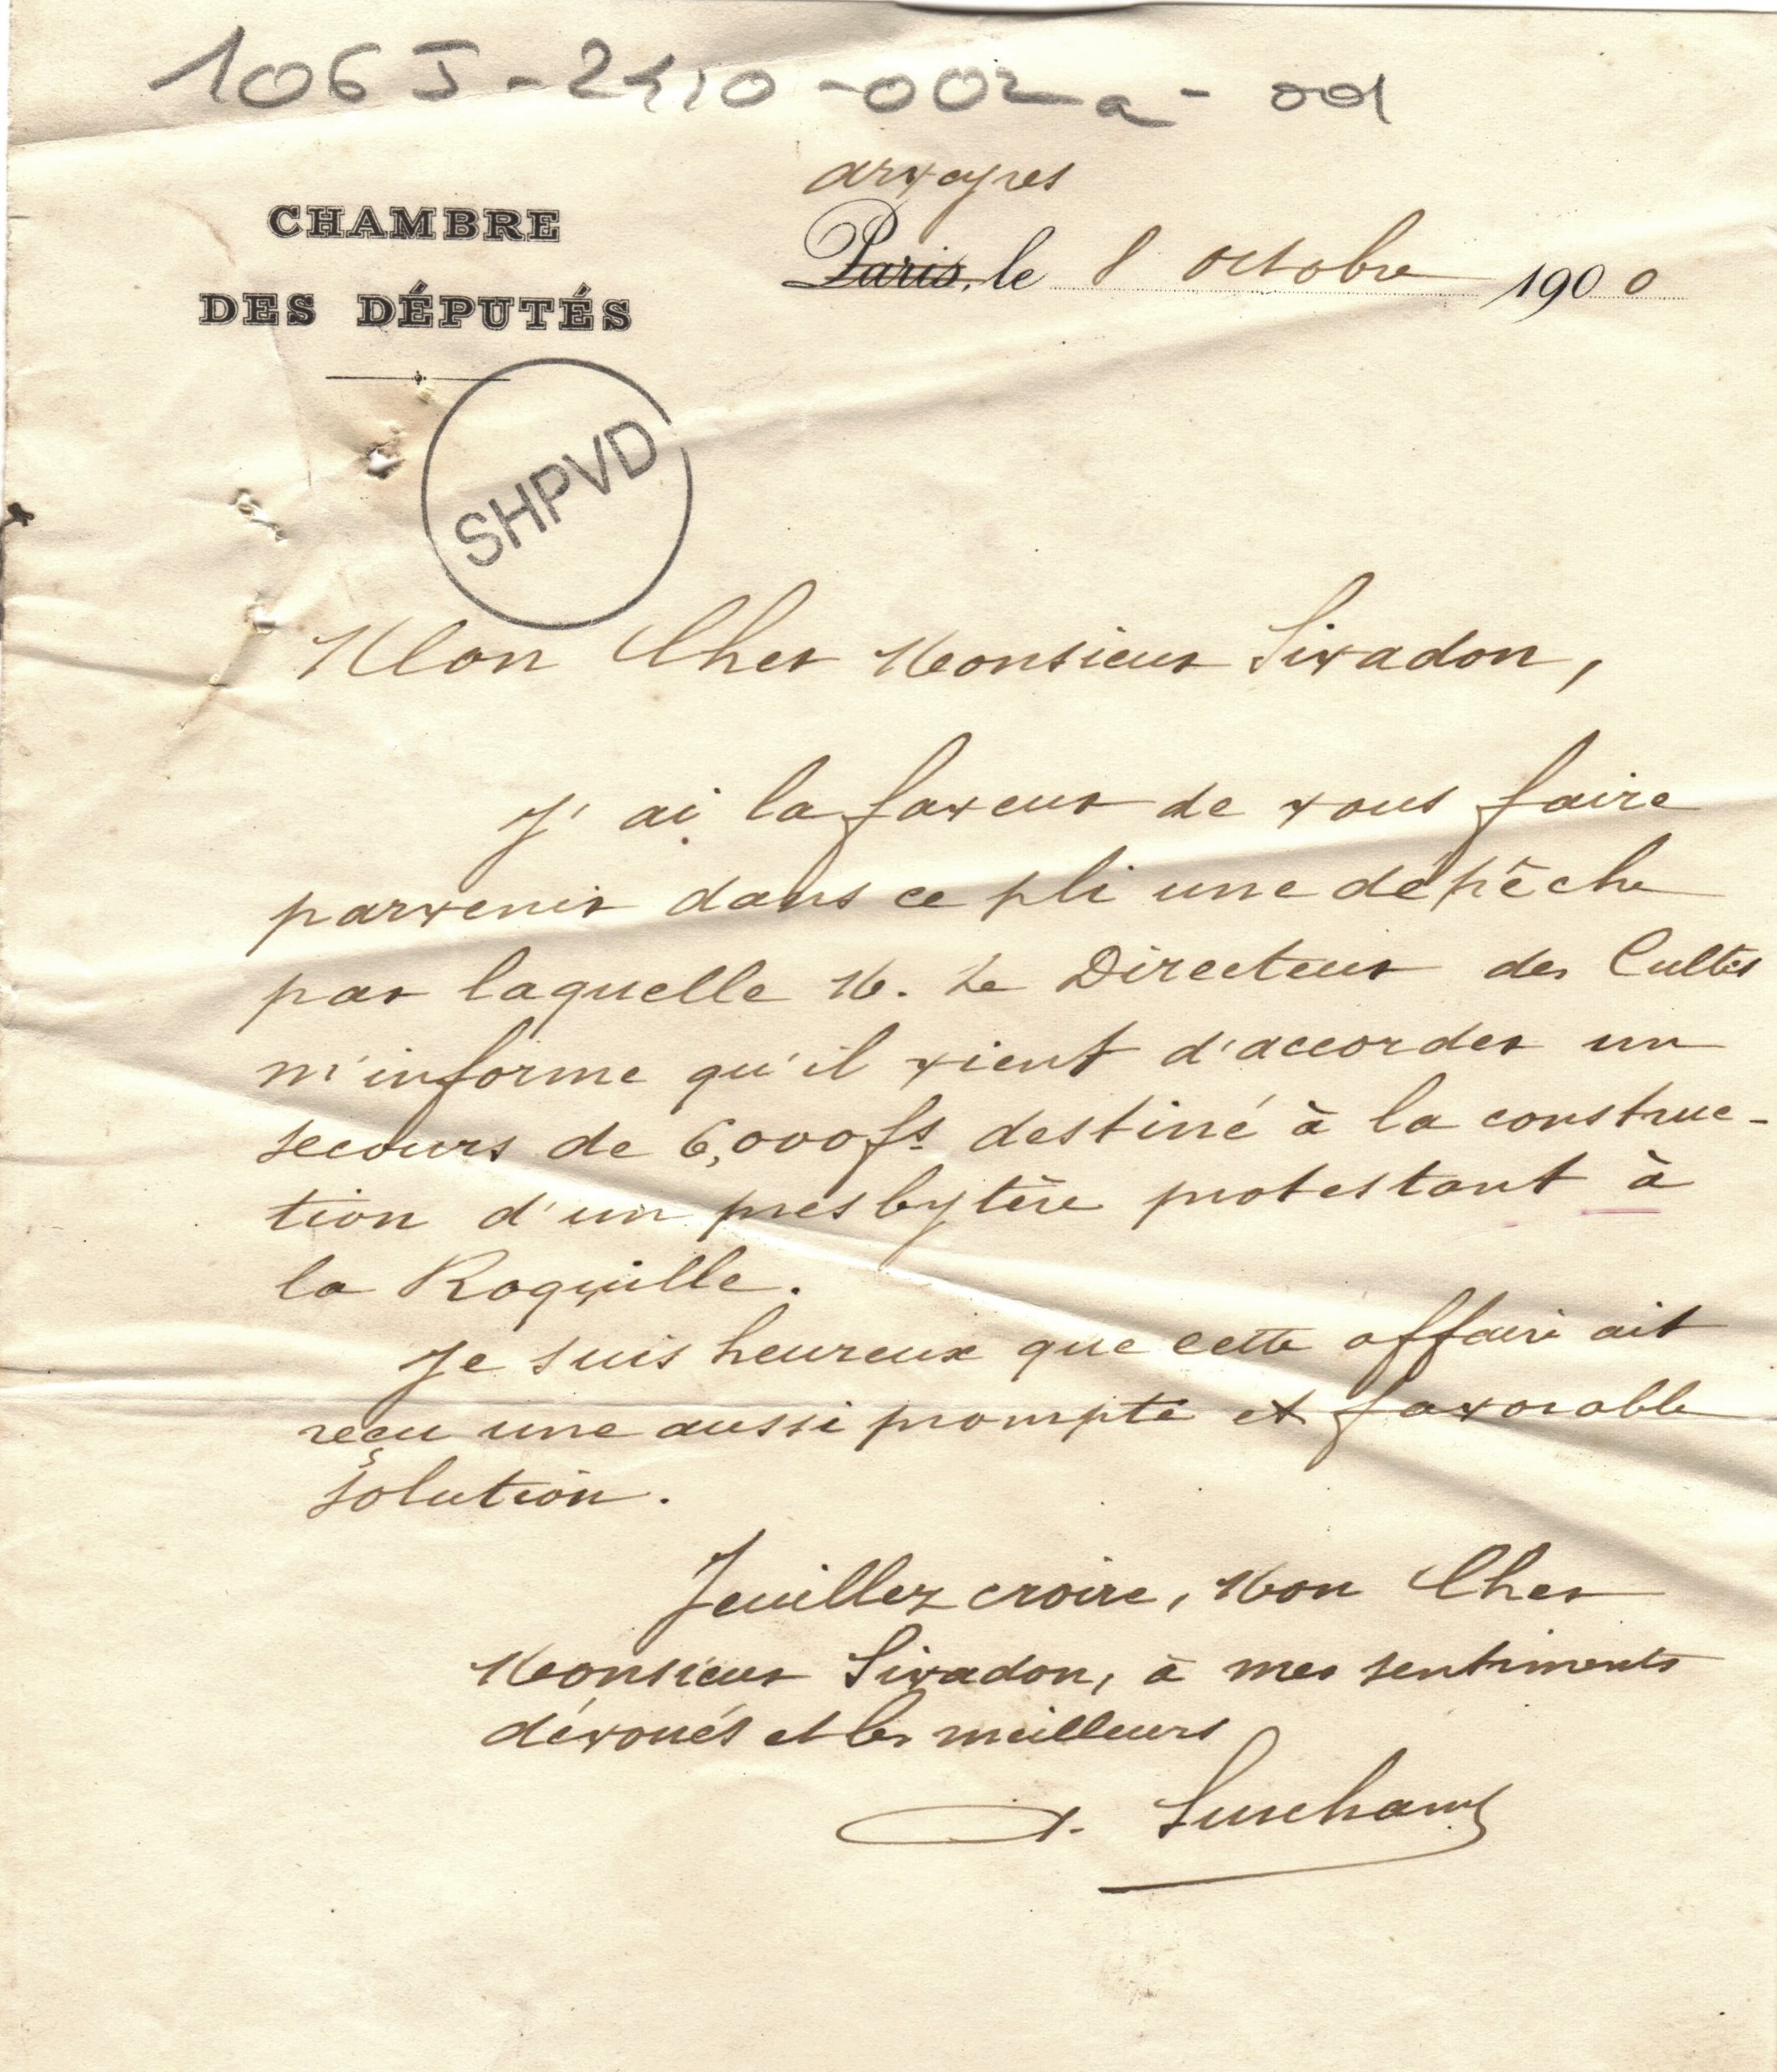 106 J - 2410 - 002 a - 001
arvayres
CHAMBRE
DES DÉPUTÉS
Paris, le 8 octobre 1900
SHPVD
Mon Cher Monsieur Sivadon,
J'ai la faveur de vous faire
parvenir dans ce pli une dépêche
par laquelle M. Le Directeur des Cultes
m'informe qu'il vient d'accorder un
secours de 6,000 fs destiné à la construc-
tion d'un presbytère protestant à
la Roquille.
Je suis heureux que cette affaire ait
reçu une aussi prompte et favorable
solution.
Veuillez croire, Mon Cher
Monsieur Sivadon, à mes sentiments
dévoués et les meilleurs
Surchamp